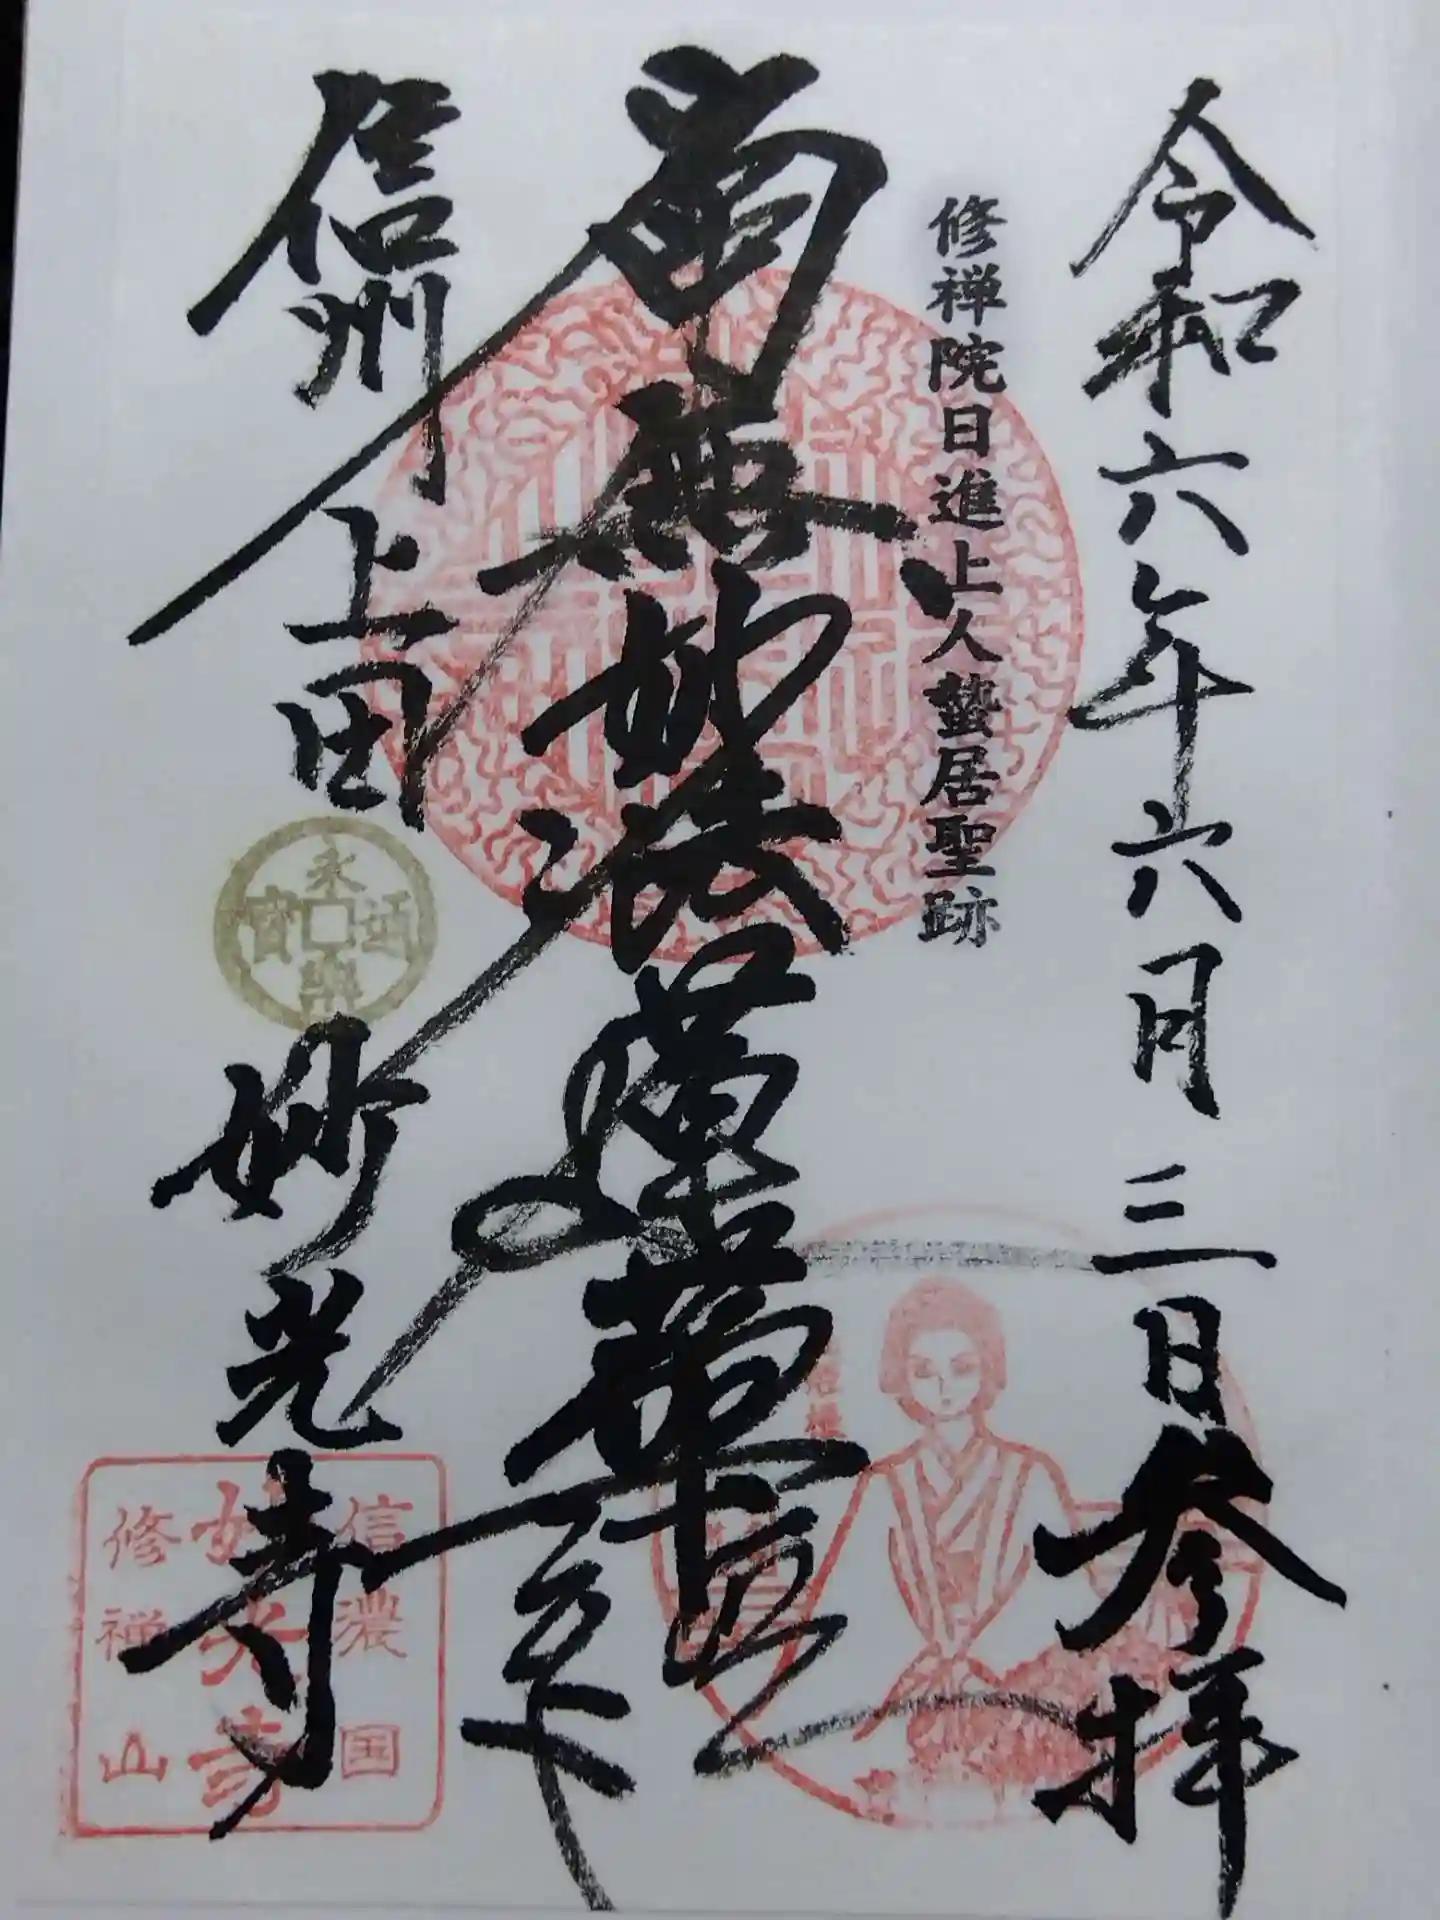 令和六年六月三日参拝
修禅院日進上人蟄居聖跡
南無妙法蓮華経
信州上田
永楽通寳
妙光寺
信濃国
妙光寺
修禅山